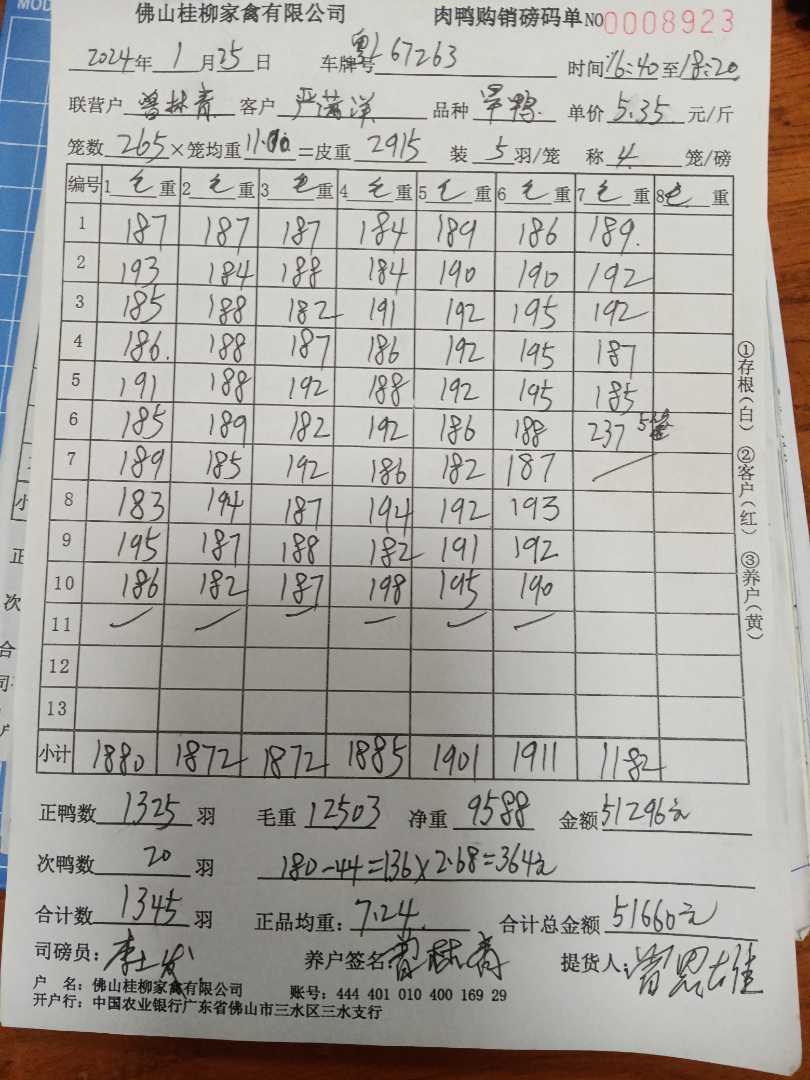 佛山桂柳家禽有限公司 肉鸭购销磅码单 NO 0008923
2024年 1月25日 车牌号 粤L67263 时间 16:40至18:20
联营户 曾林青 客户 严满洋 品种 旱鸭 单价 5.35 元/斤
笼数 265 ×笼均重 11.00 =皮重 2915 装 5 羽/笼 称 4 笼/磅
编号 1毛重 2毛重 3毛重 4毛重 5毛重 6毛重 7毛重 8毛重
1 187 187 187 184 189 186 189.
2 193 184 188 184 190 190 192
3 185 188 182 191 192 195 192
4 186. 188 187 186 192 195 187
5 191 188 192 188 192 195 185
6 185 189 182 192 186 188 237 5笼
7 189 185 192 186 182 187
8 183 194 187 194 192 193
9 195 187 188 182 191 192
10 186 182 187 198 195 190
11
12
13
小计 1880 1872 1872 1885 1901 1911 1182
正鸭数 1325 羽 毛重 12503 净重 9588 金额 51296元
次鸭数 20 羽 180-44=136×2.68=364元
合计数 1345 羽 正品均重: 7.24. 合计总金额 51660元
司磅员: 养户签名: 曾林青 提货人:
户 名: 佛山桂柳家禽有限公司 账号: 444 401 010 400 169 29
开户行: 中国农业银行广东省佛山市三水区三水支行
①存根(白) ②客户(红) ③养户(黄)